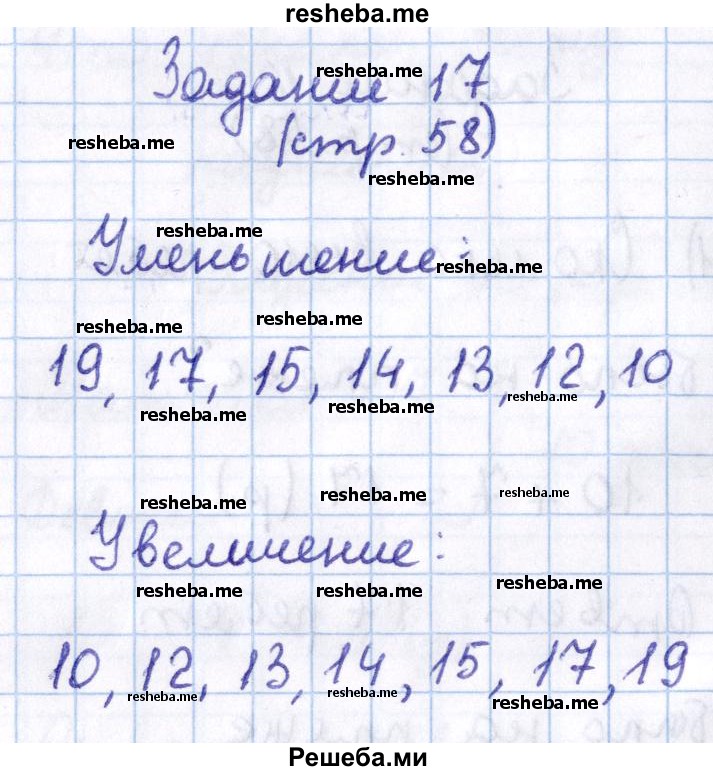 resheba.me
Задание 17
resheba.me
resheba.me
(стр. 58)
resheba.me
resheba.me
Уменьшение:
resheba.me
resheba.me
resheba.me
19, 17, 15, 14, 13, 12, 10
resheba.me
resheba.me
resheba.me
resheba.me
resheba.me
resheba.me
Увеличение:
resheba.me
resheba.me
resheba.me
10, 12, 13, 14, 15, 17, 19
resheba.me
resheba.me
resheba.me
Решеба.ми